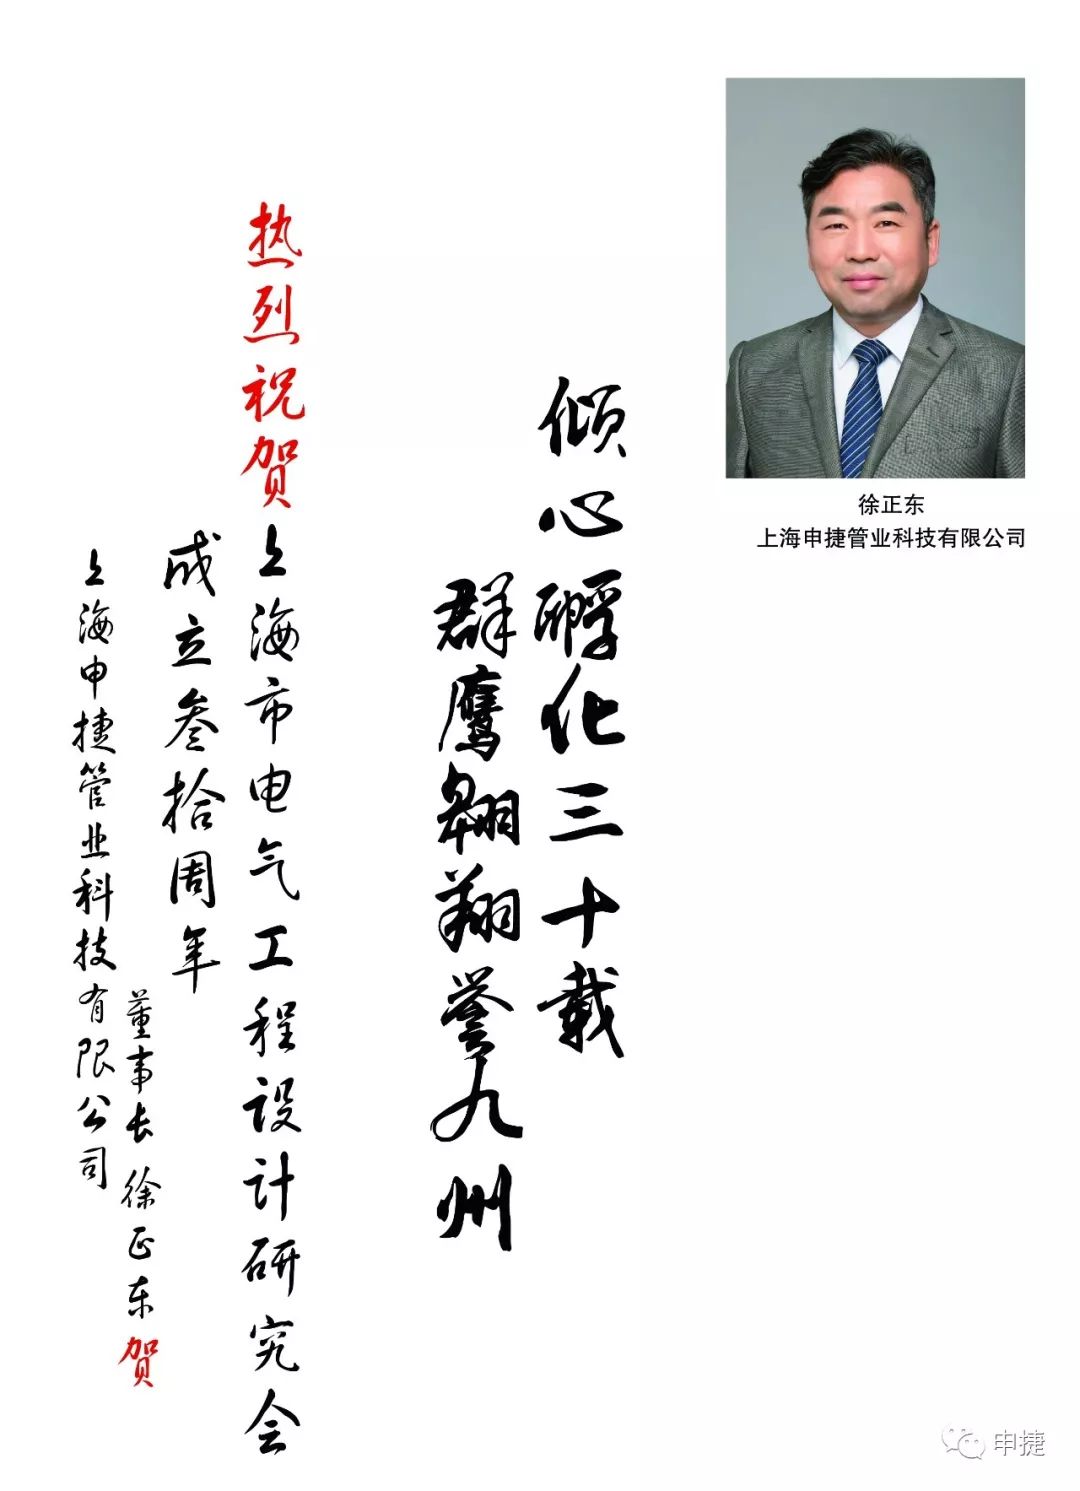 徐正东
上海申捷管业科技有限公司
倾心孵化三十载
群鹰翱翔誉九州
热烈祝贺上海市电气工程设计研究会
成立叁拾周年
上海申捷管业科技有限公司
董事长徐正东贺
申捷